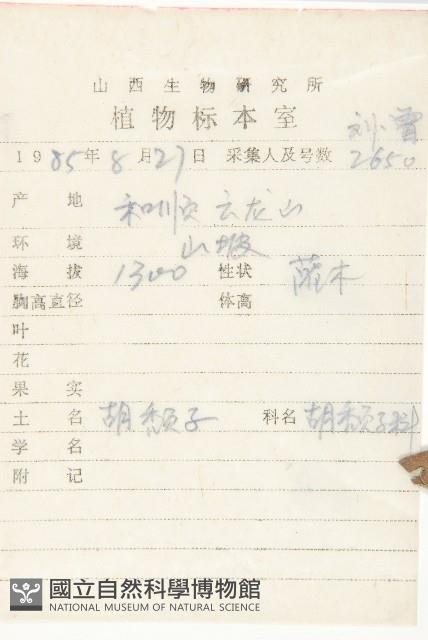 山西生物研究所
植物标本室
刘 曾
1985年8月27日 采集人及号数 2650
产地 和顺云龙山
环境 山坡
海拔 1300 性状 灌木
胸高直径 体高
叶
花
果实
土名 胡颓子 科名 胡颓子科
学名
附记
國立自然科學博物館
NATIONAL MUSEUM OF NATURAL SCIENCE